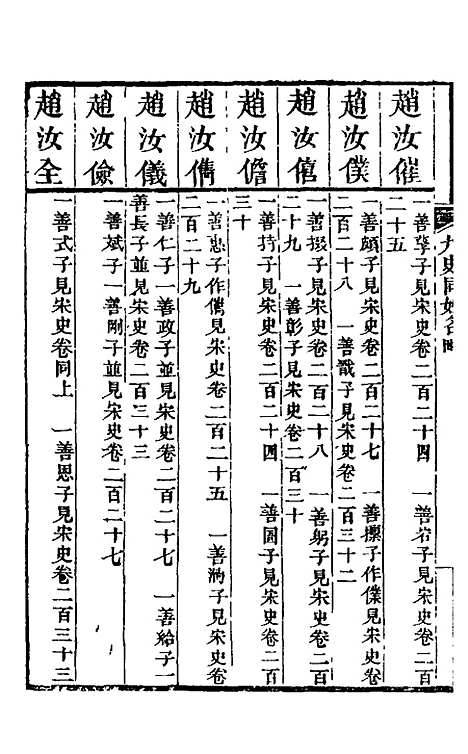 九史同姓名
趙汝㒍
一善孳子見宋史卷二百二十四 一善宕子見宋史卷二百
二十五
趙汝僕
一善頤子見宋史卷二百二十七 一善摽子作僕見宋史卷
二百二十八 一善戩子見宋史卷二百三十二
趙汝僖
一善掇子見宋史卷二百二十八 一善躬子見宋史卷二百
二十九 一善彰子見宋史卷二百三十
趙汝儋
一善持子見宋史卷二百二十四 一善圄子見宋史卷二百
三十
趙汝儁
一善忠子作儁見宋史卷二百二十五 一善泃子見宋史卷
二百二十九
趙汝儀
一善仁子一善政子並見宋史卷二百二十七 一善給子一
善長子並見宋史卷二百三十三
趙汝儉
一善斌子一善剛子並見宋史卷二百二十七
趙汝全
一善式子見宋史卷同上 一善思子見宋史卷二百三十三